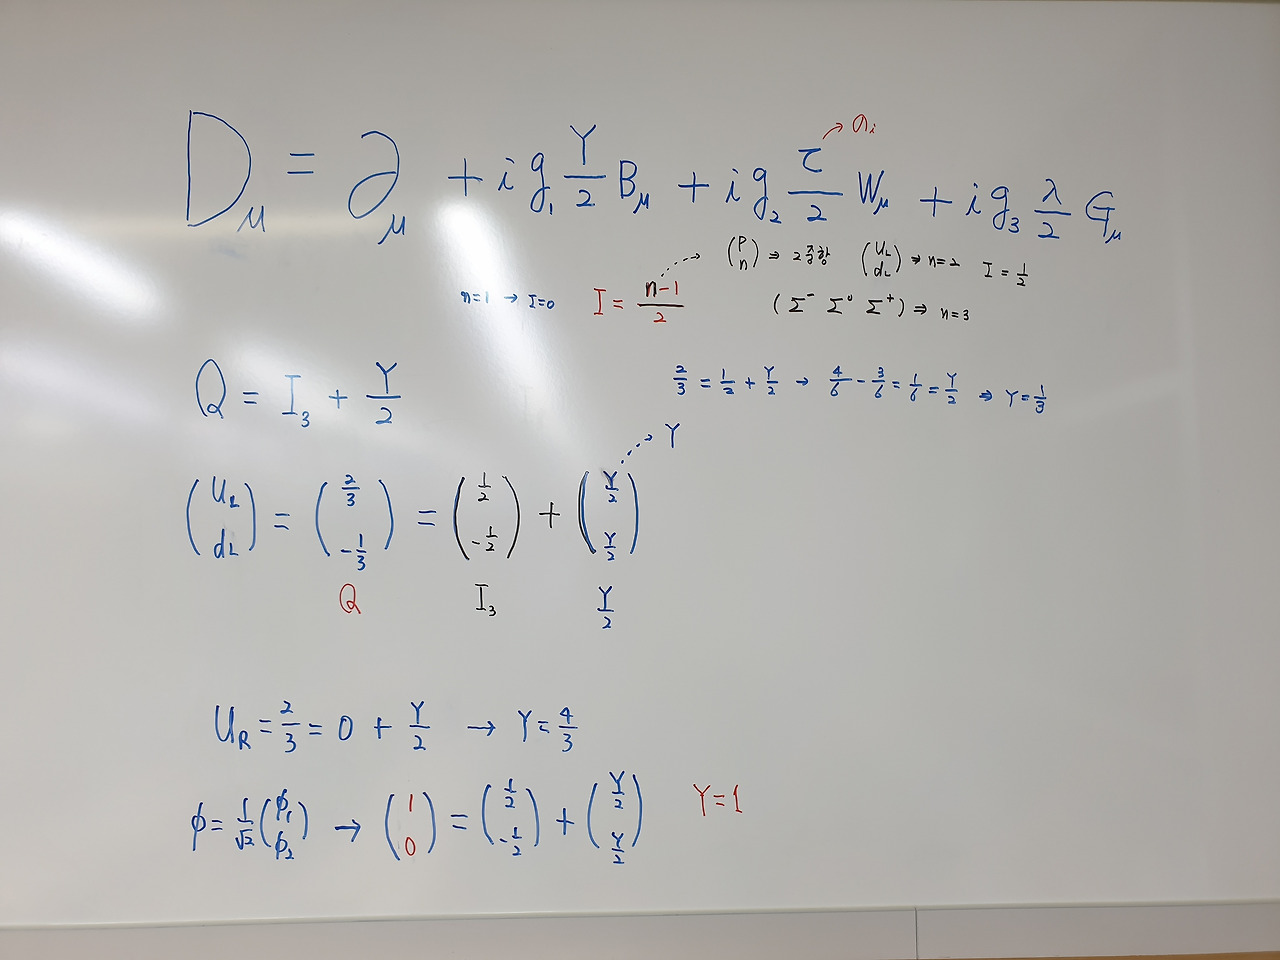 Dμ = ∂μ + i g₁ Y/2 Bμ + i g₂ τ/2 Wμ + i g₃ λ/2 Gμ
→ σᵢ
(p n) ⇒ 2중항 (u_L d_L) → n=2 I = 1/2
n=1 → I=0 I = (n-1)/2 (Σ⁻ Σ⁰ Σ⁺) ⇒ n=3
Q = I₃ + Y/2
2/3 = 1/2 + Y/2 → 4/6 - 3/6 = 1/6 = Y/2 ⇒ Y = 1/3
→ Y
(u_L d_L) = (2/3 -1/3) = (1/2 -1/2) + (Y/2 Y/2)
Q I₃ Y/2
u_R = 2/3 = 0 + Y/2 → Y = 4/3
ϕ = 1/√2 (ϕ₁ ϕ₂) → (1 0) = (1/2 -1/2) + (Y/2 Y/2) Y=1